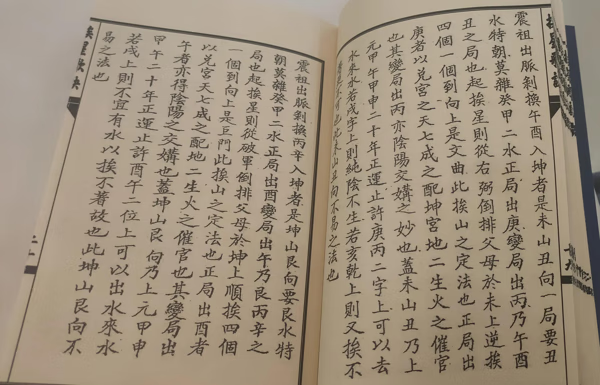 震祖出脈剝換午酉入坤者是未山丑向一局要丑
水特朝莫雜癸甲二水正局出庚變局出丙乃午酉
丑之局也起挨星則從右弼倒排父母於未上逆挨
四個一個到向上是文曲此挨山之定法也正局出
庚者以兌宮之天七成之配坤宮地二生火之催官
也其變局出丙亦陰陽交媾之妙也蓋未山丑乃上
元甲午甲申二十年正運止許庚丙二字上可以去
水來水若戌字上則純陰不生若亥乾上則又挨不
不可也此未山丑向不易之法也
震祖出脈剝換丙辛入坤者是坤山艮向要艮水特
朝莫雜癸甲二水正局出酉變局出午乃艮丙辛之
局也起挨星則從破軍倒排父母於坤上順挨四個
一個到向上是巨門此挨山之定法也正局出酉者
以兌宮天七成之配地二生火之催官也其變局出
午者亦得陰陽之交媾也蓋坤山艮向乃上元甲申
甲午二十年正運止許酉午二位上可以出水來水
若戌上則不宜有水以挨不著故也此坤山艮向不
易之法也
挨星歌訣